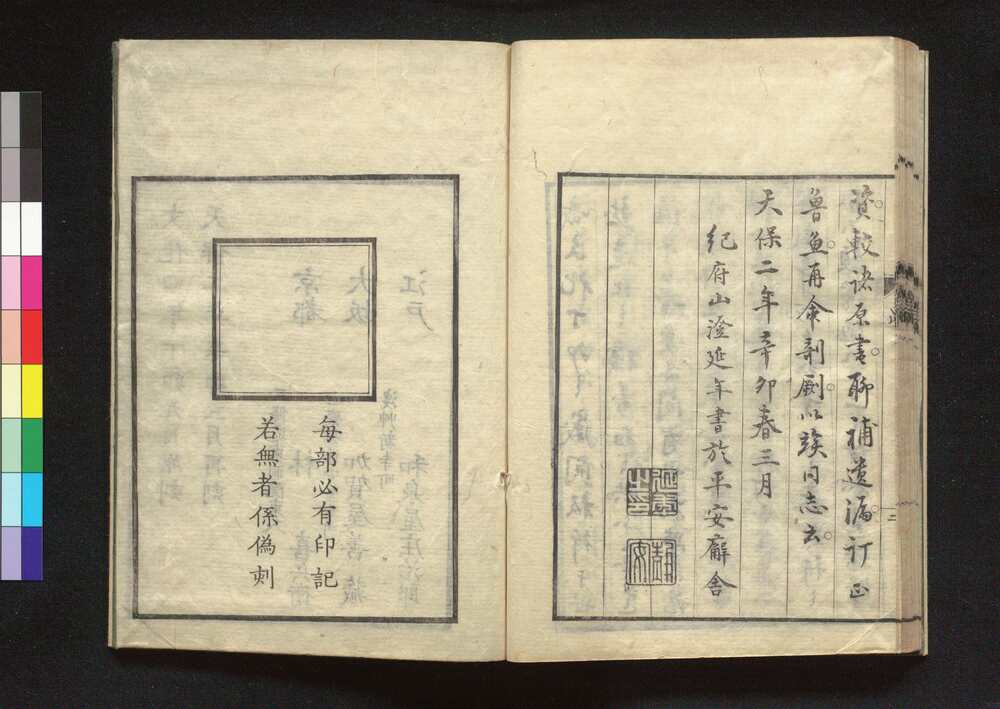 資較諸原書。聊補遺漏。訂正
魯魚。再命剞劂。以竢同志云。
天保二年辛卯春三月
紀府山澄延年書於平安廨舎
每部必有印記
若無者係偽刻